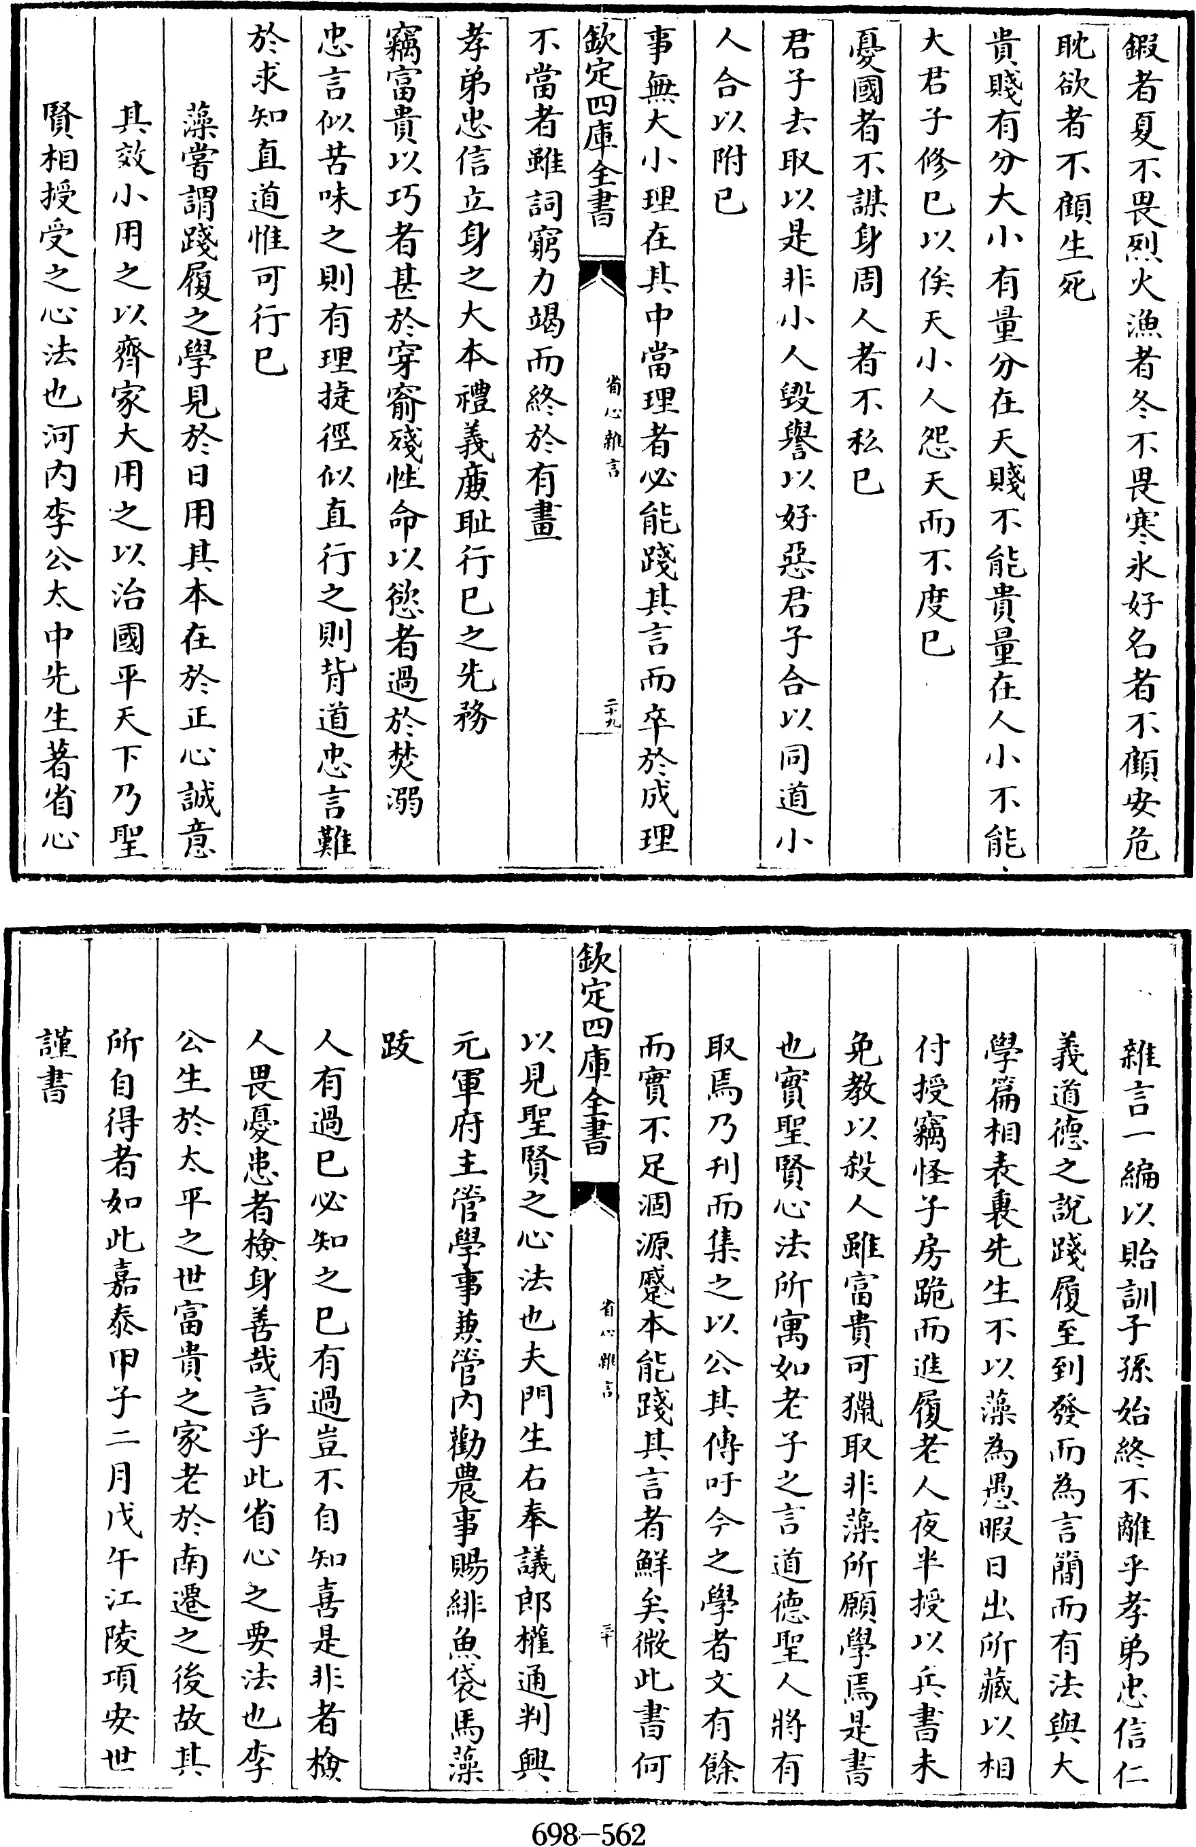 鍜者夏不畏烈火漁者冬不畏寒氷好名者不顧安危
耽欲者不顧生死
貴賤有分大小有量分在天賤不能貴量在人小不能
大君子修已以俟天小人怨天而不度已
憂國者不謀身周人者不私已
君子去取以是非小人毀譽以好惡君子合以同道小
人合以附已
事無大小理在其中當理者必能踐其言而卒於成理
欽定四庫全書
省心雜言
二十九
不當者雖詞窮力竭而終於有畫
孝弟忠信立身之大本禮義廉耻行已之先務
竊富貴以巧者甚於穿窬殘性命以慾者過於焚溺
忠言似苦味之則有理捷徑似直行之則背道忠言難
於求知直道惟可行已
藻嘗謂踐履之學見於日用其本在於正心誠意
其效小用之以齊家大用之以治國平天下乃聖
賢相授受之心法也河内李公太中先生著省心
雜言一編以貽訓子孫始終不離乎孝弟忠信仁
義道德之說踐履至到發而為言簡而有法與大
學篇相表裏先生不以藻為愚暇日出所藏以相
付授竊怪子房跪而進履老人夜半授以兵書未
免教以殺人雖富貴可獵取非藻所願學焉是書
也實聖賢心法所寓如老子之言道德聖人將有
取焉乃刊而集之以公其傳吁今之學者文有餘
而實不足涸源蹷本能踐其言者鮮矣微此書何
欽定四庫全書
省心雜言
三十
以見聖賢之心法也夫門生右奉議郎權通判興
元軍府主管學事兼管内勸農事賜緋魚袋馬藻
跋
人有過已必知之已有過豈不自知喜是非者檢
人畏憂患者檢身善哉言乎此省心之要法也李
公生於太平之世富貴之家老於南遷之後故其
所自得者如此嘉泰甲子二月戊午江陵項安世
謹書
698-562